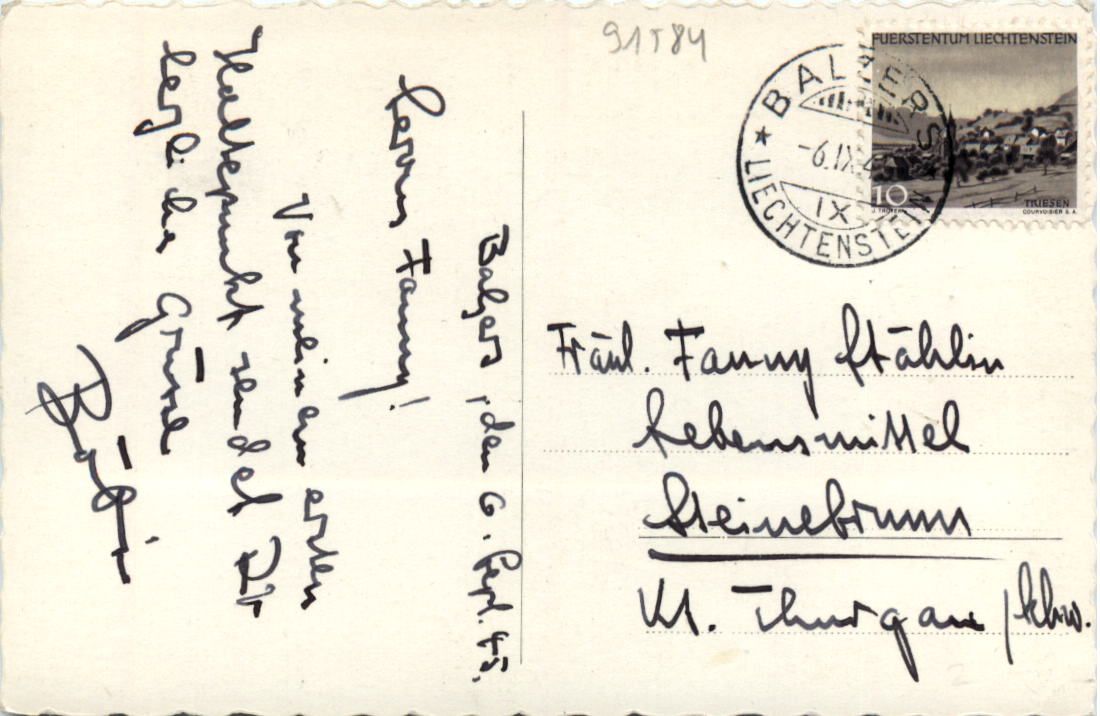 91584
FUERSTENTUM LIECHTENSTEIN
10
J. TROYER
TRIESEN
COURVOISIER S.A.
BALZERS
-6.IX.4
IX
LIECHTENSTEIN
Balzers, den 6. Sept. 45.
Servus Fanny!
Von meinem ersten
Haltepunkt sendet Dir
herzliche Grüsse
Fräul. Fanny Stähelin
Lebensmittel
Steinebrunn
Kt. Thurgau / Schw.